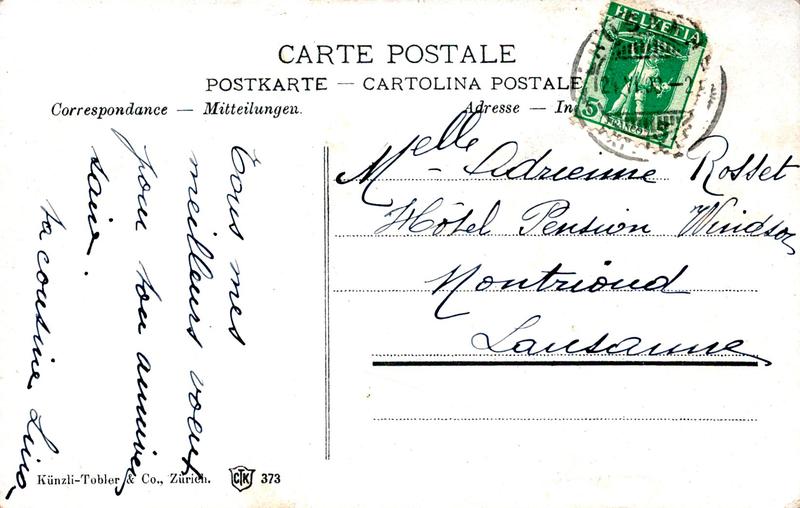 CARTE POSTALE
POSTKARTE — CARTOLINA POSTALE
Correspondance — Mitteilungen.
Adresse —
HELVETIA
5 5
FRANCO
Mlle Adrienne Rosset
Hôtel Pension Windsor
Montriond
Lausanne
Tous mes
meilleurs voeux
pour ton anniver
saire.
ta cousine
Künzli-Tobler & Co., Zürich. CTK 373